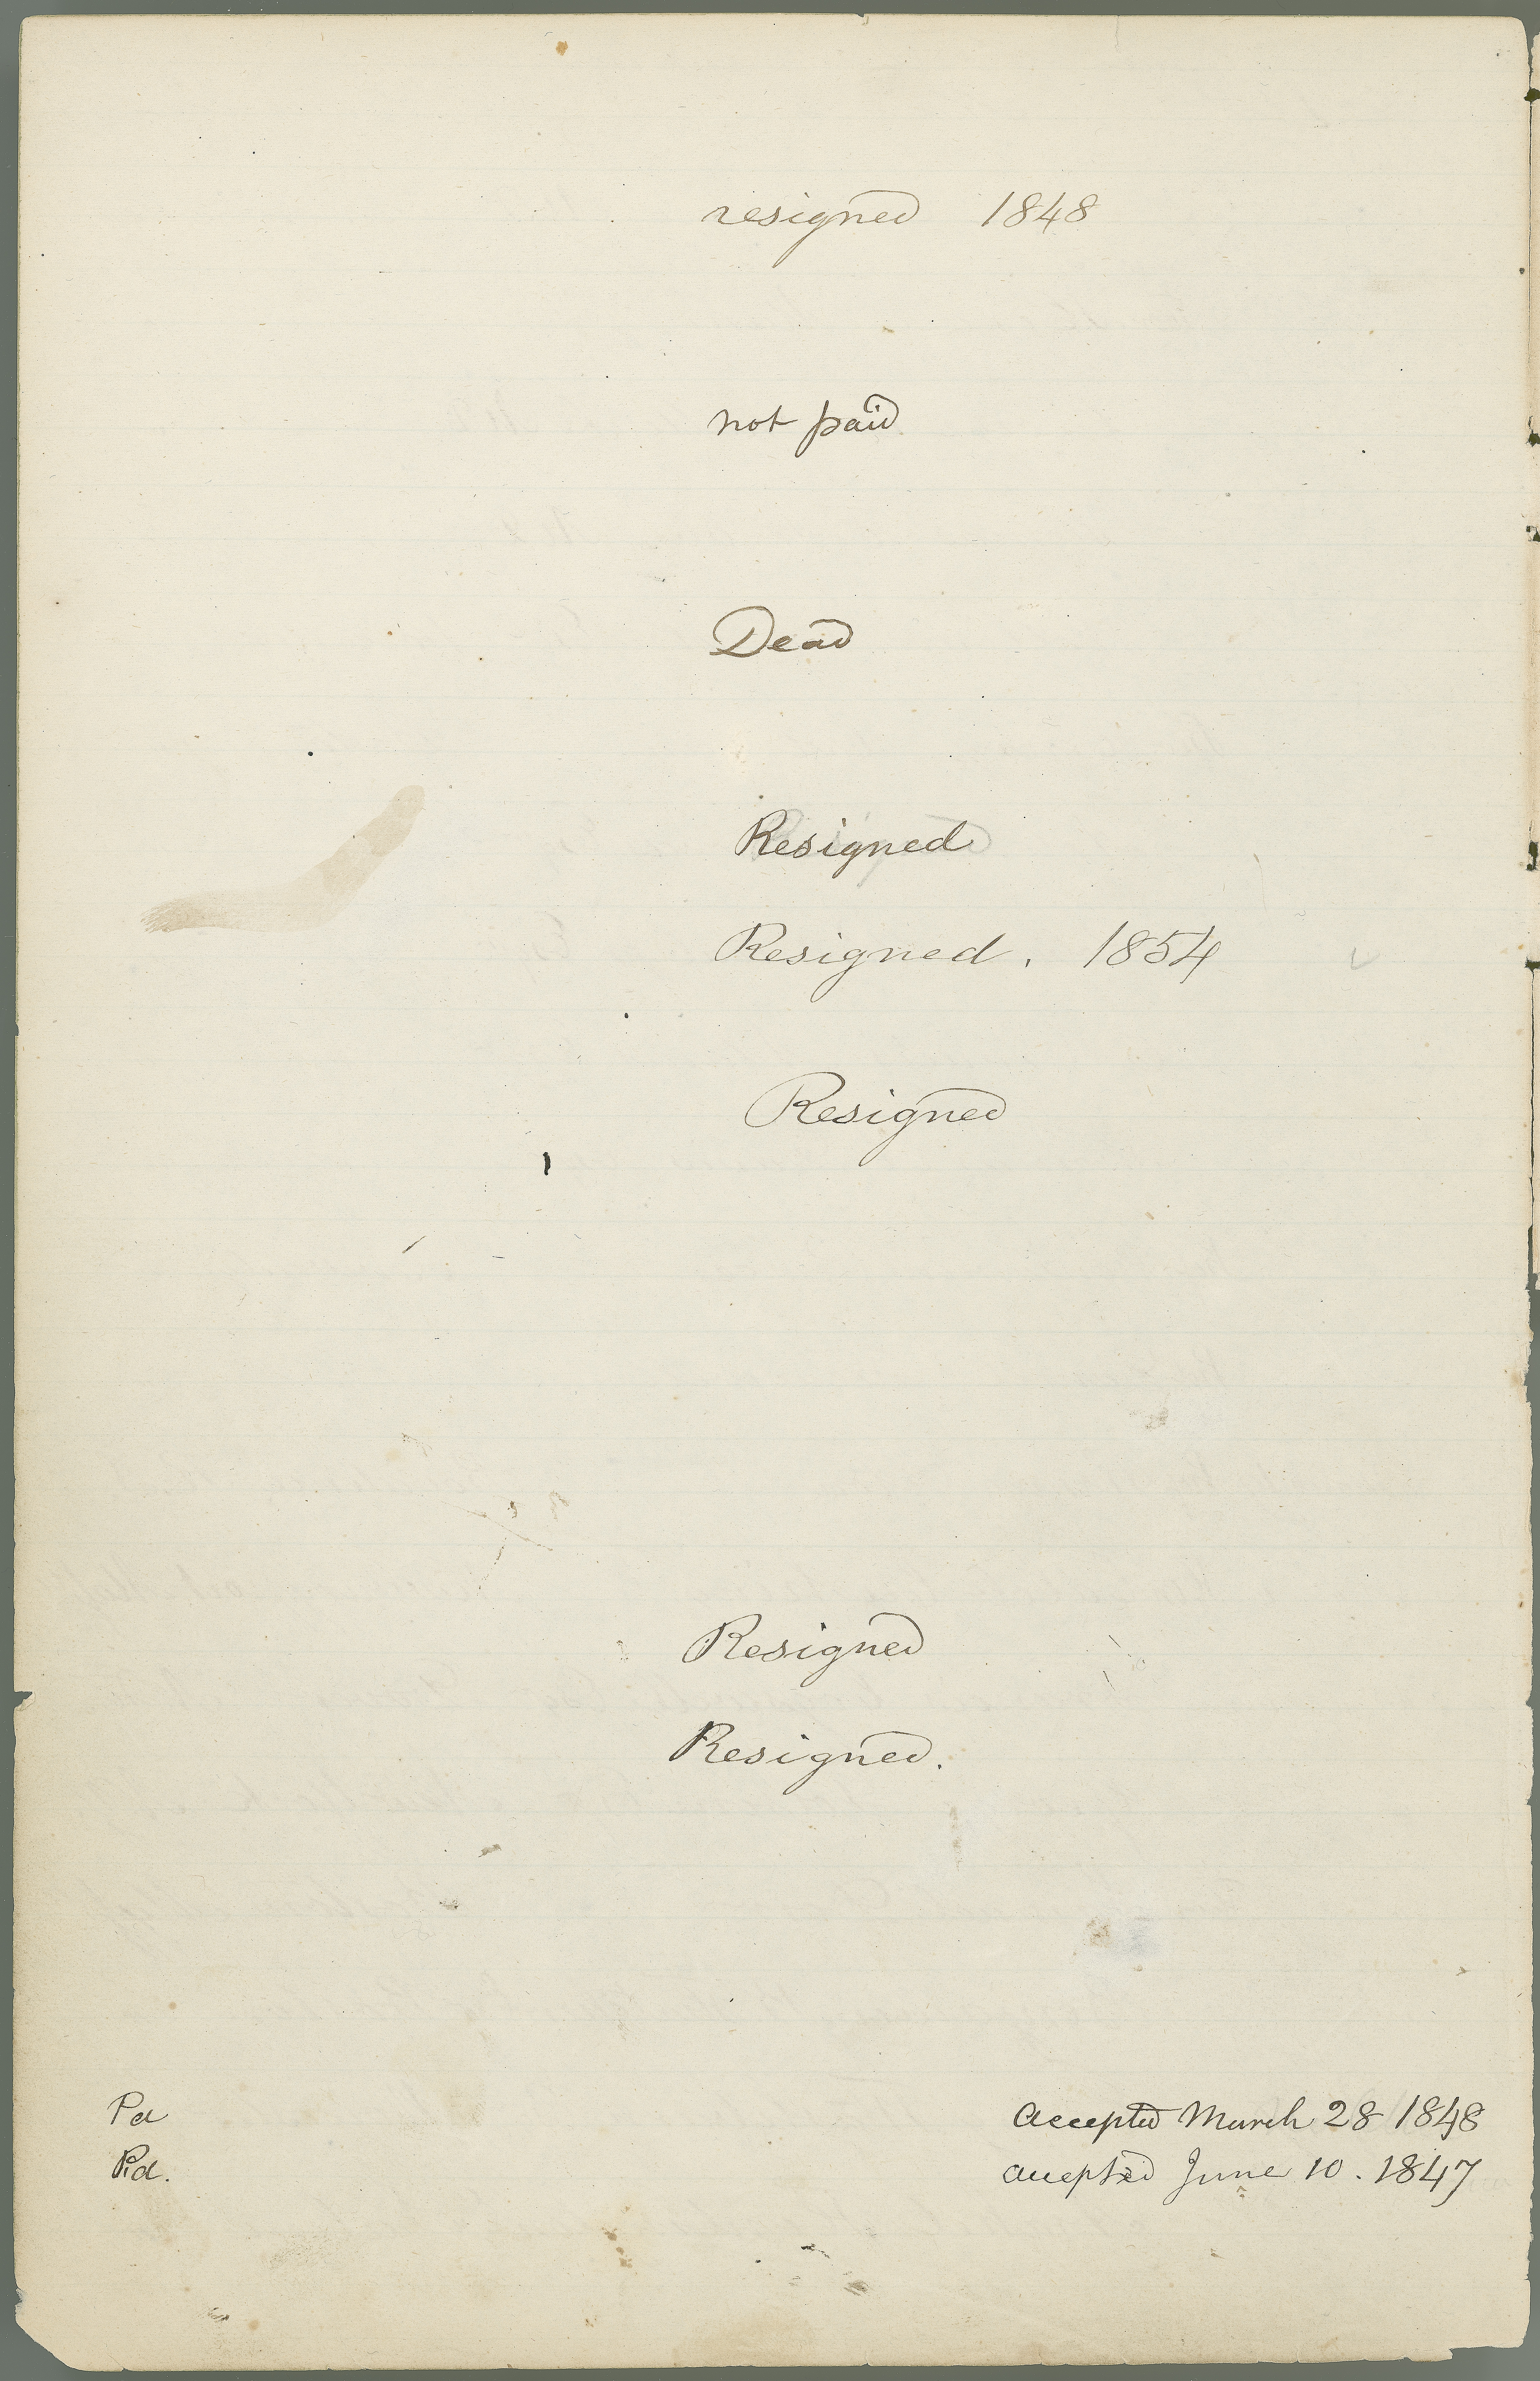 resigned 1848
not paid
Dead
Resigned
Resigned. 1854
Resigned
Resigned
Resigned.
Pd accepted March 28 1848
Pd. accepted June 10. 1847